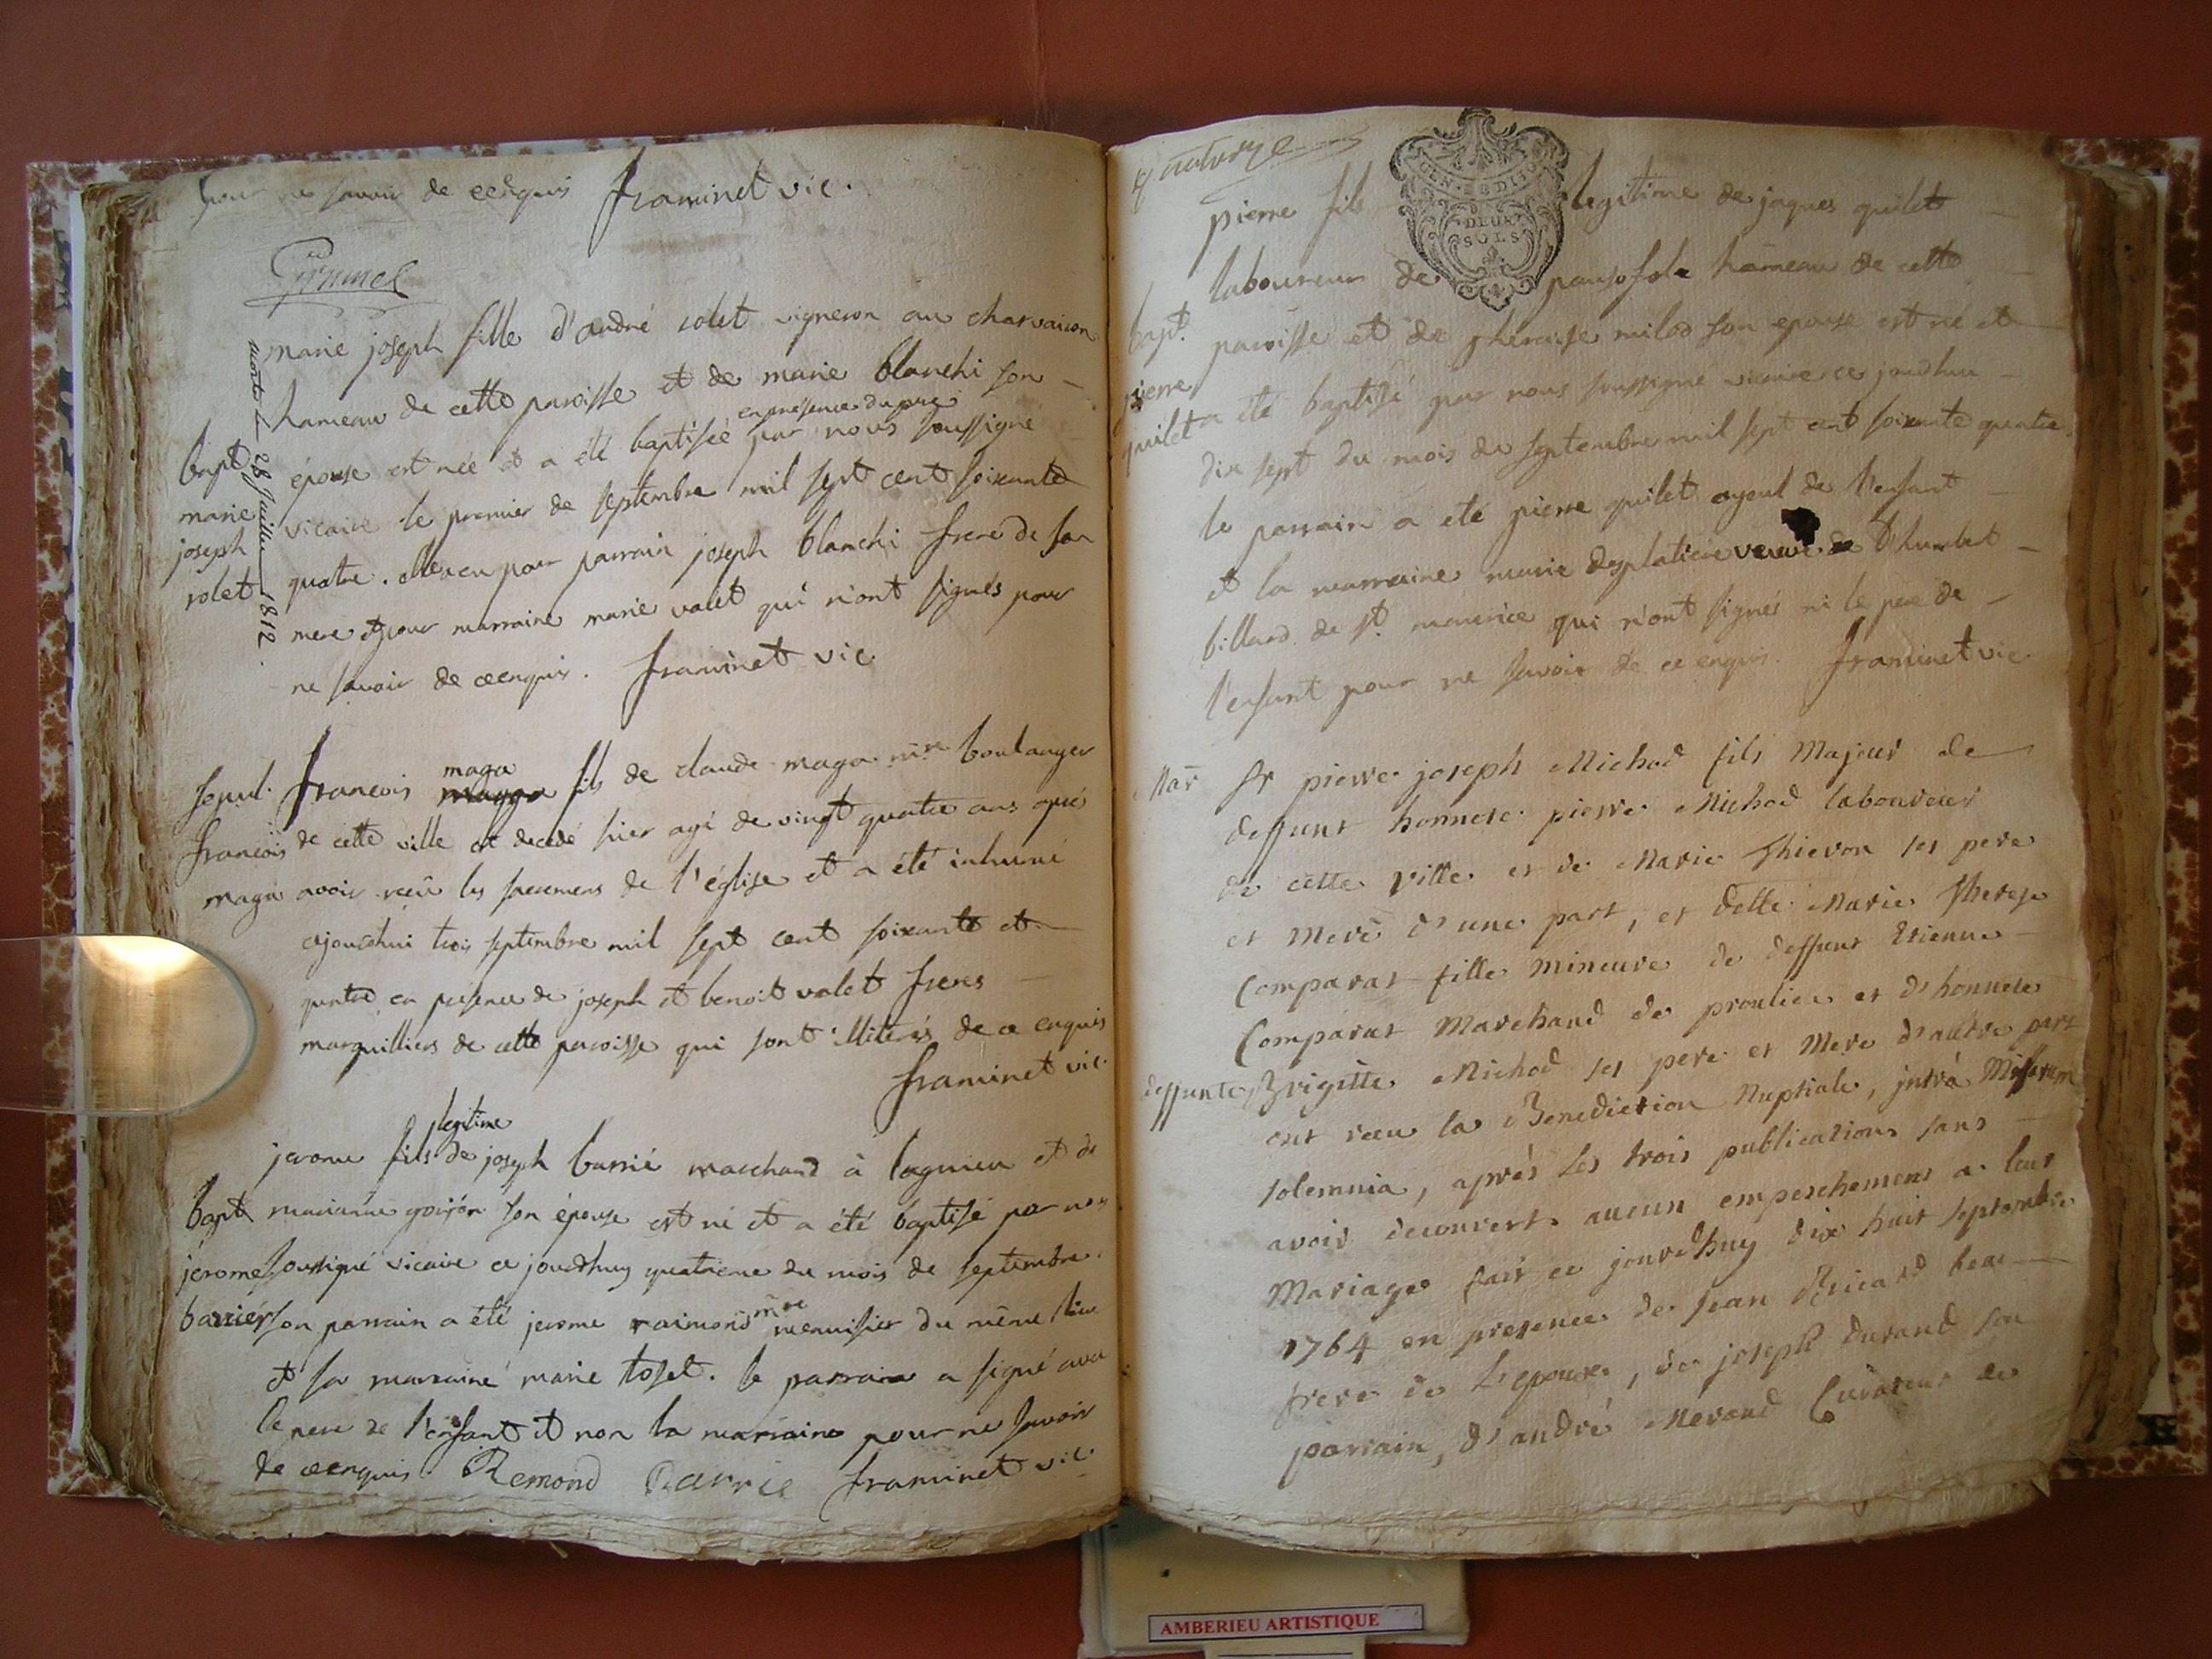 pour ne savoir de ce enquis framinet vic.
marie joseph fille d'andré rolet vigneron au charvaison
hameau de cette paroisse et de marie blanchi son
en presence du pere
épouse est née et a été baptisée par nous soussigné
vicaire le premier de septembre mil sept cent soixante
quatre. elle a eu pour parrain joseph blanchi frere de sa
mere et pour marraine marie valet qui n'ont signés pour
ne savoir de ce enquis. framinet vic.
bapt
marie
joseph
rolet
morte le 28 Juillet 1812.
maga
françois magga fils de claude maga mre boulanger
de cette ville est decedé hier agé de vingt quatre ans après
avoir reçu les sacremens de l'église et a été inhumé
cejourdhui trois septembre mil sept cent soixante et
quatre en présence de joseph et benoit valet freres
marguilliers de cette paroisse qui sont illiterés de ce enquis
framinet vic.
sepul.
françois
maga
legitime
jerome fils de joseph barrié marchand à lagnieu et de
marianne goiron son épouse est né et a été baptisé par nous
soussigné vicaire ce jourdhuy quatrieme du mois de septembre.
son parrain a été jerome raimond mre menuisier du même lieu
et sa marraine marie toset. le parrain a signé avec
le pere de l'enfant et non la marraine pour ne savoir
de ce enquis. Remond Barrie framinet vic.
bapt
jérome
barrier
pierre fils legitime de jaques quilet
GEN DEUX SOLS
laboureur de hameau de cette
paroisse et de theraise milod son epouse est né et
a été baptisé par nous soussigné vicaire ce jourdhui
dix sept du mois de septembre mil sept cent soixante quatre.
le parrain a eté pierre quilet ayeul de l'enfant
et la marraine marie desplatiere veuve de d'humbert
billard de st. maurice qui n'ont signés ni le pere de
l'enfant pour ne savoir de ce enquis. framinet vic.
bapt.
pierre
quilet
Mar Sr pierre joseph Michod fils Majeur de
deffunt honnete pierre Michod laboureur
de cette ville et de Marie Thievon ses pere
et Mere d'une part, et delle Marie Therese
Comparat fille mineure de deffunt Etienne
Comparat Marchand de proulieu et d'honnete
deffunte Brigitte Michod ses pere et Mere d'autre part
ont reçu la Benediction Nuptiale, intrà Missarum
solemnia, après les trois publications sans
avoir decouvert aucun empeschement a leur
Mariage fait ce jourdhuy dix huit septembre
1764 en presence de Jean Ricard beau
frere de L'epouse, de joseph durand son
parrain, d'andré Merand Curateur de
AMBERIEU ARTISTIQUE